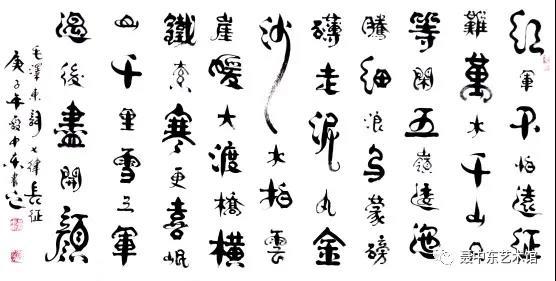 紅軍不怕遠征
難萬水千山只
等閑五嶺逶迤
騰細浪烏蒙磅
礴走泥丸金
沙水拍雲
崖暖大渡橋橫
鐵索寒更喜岷
山千里雪三軍
過後盡開顏
毛澤東詞七律長征
庚子年聂中东書
聂中东艺术馆